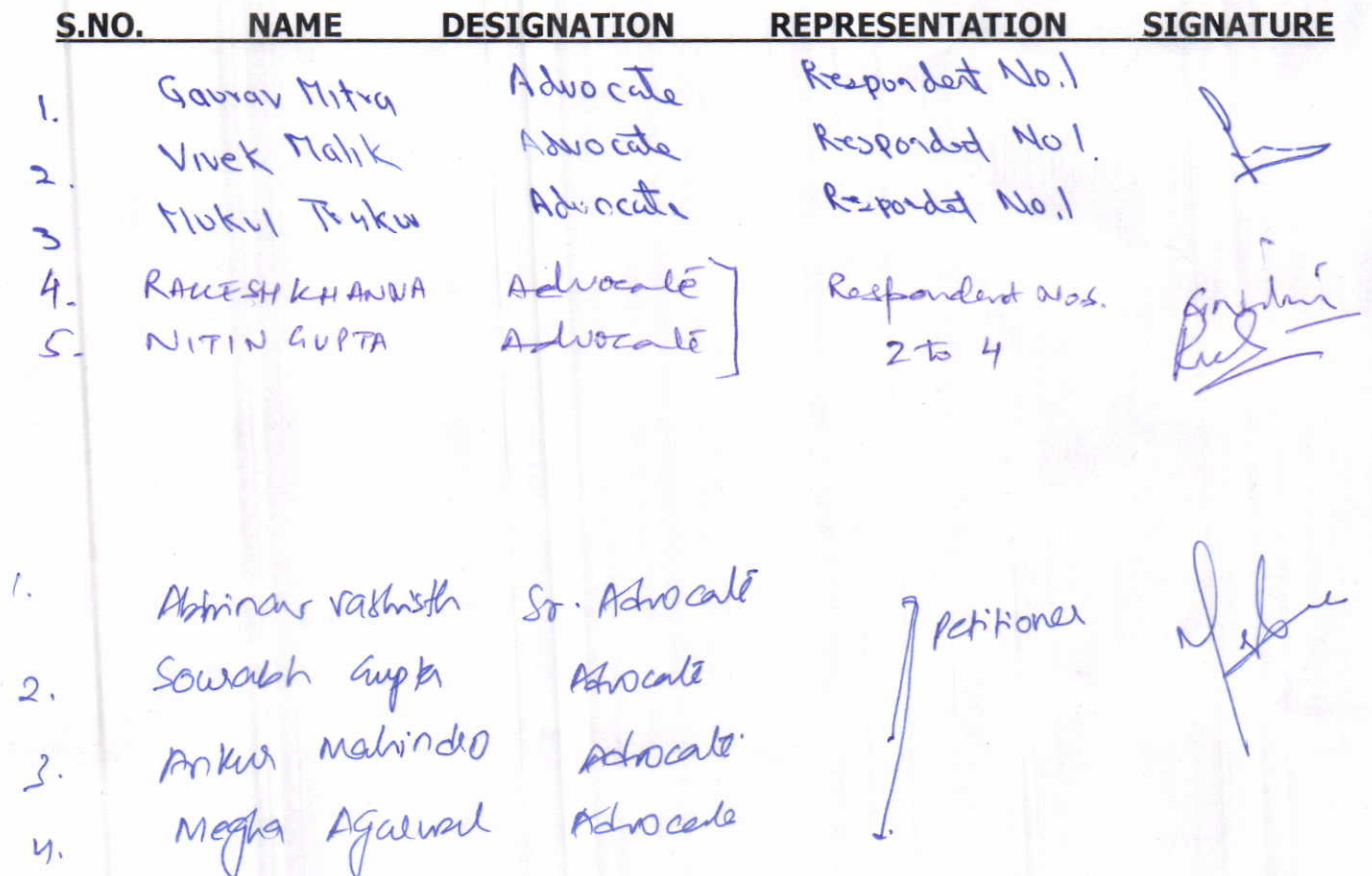 S.NO. NAME DESIGNATION REPRESENTATION SIGNATURE
1. Gaurav Mitra Advocate Respondent No.1
2. Vivek Malik Advocate Respondent No 1.
3 Mukul Advocate Respondent No.1
4. RAKESH KHANNA Advocate Respondent Nos.
5. NITIN GUPTA Advocate 2 to 4
1. Abhinav Vashisth Sr. Advocate Petitioner
2. Sourabh Gupta Advocate
3. Ankur Mahindro Advocate
4. Megha Agarwal Advocate